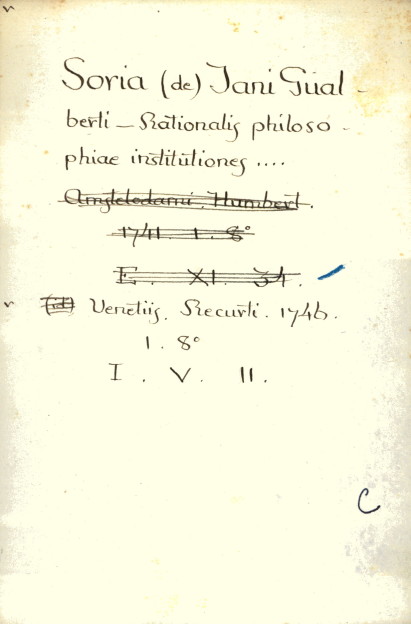 Soria (de) Jani Gual-
berti – Rationalis philoso-
phiae institutiones ....
Amstelodami. Humbert.
1741 1. 8°
E. XI. 34.
Venetiis. Recurti. 1746.
1. 8°
I. V. 11.
C